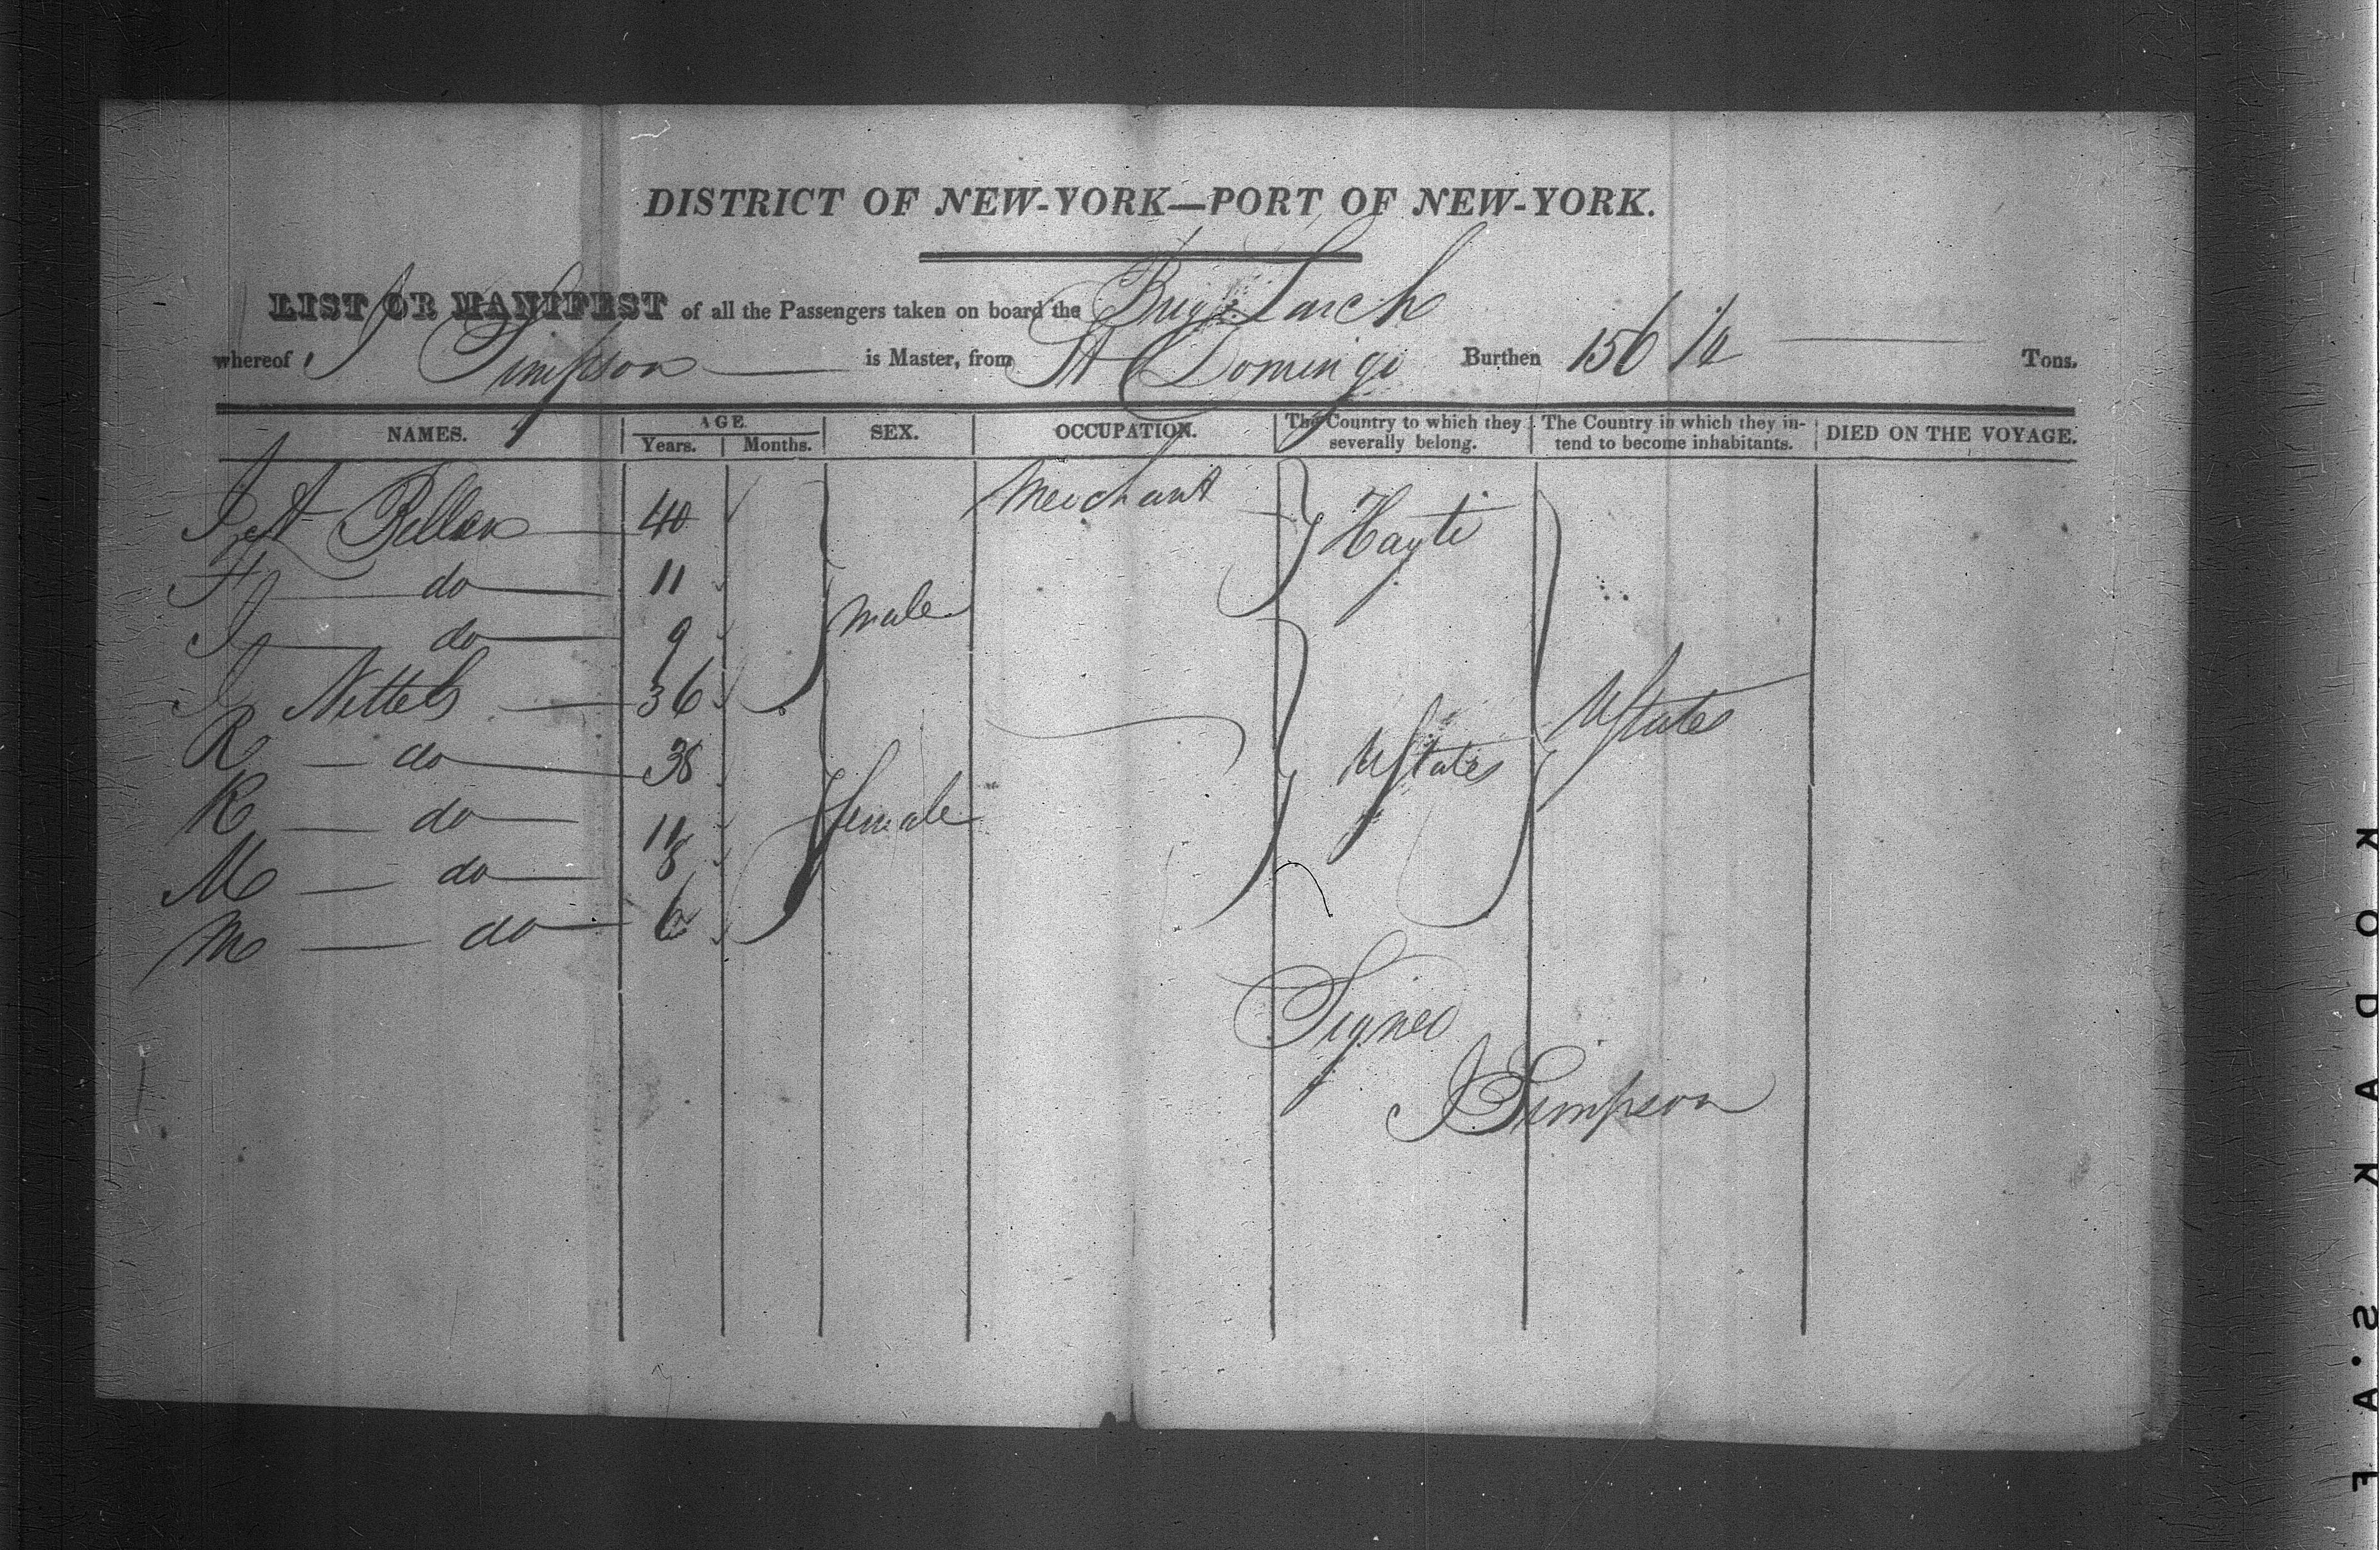 DISTRICT OF NEW-YORK—PORT OF NEW-YORK.
LIST OR MANIFEST of all the Passengers taken on board the Brig Larch
whereof J Simpson is Master, from St Domingo Burthen 156 Tons.
NAMES. AGE SEX. OCCUPATION. The Country to which they severally belong. The Country in which they in-tend to become inhabitants. DIED ON THE VOYAGE.
Years. Months.
40 Merchant Hayti
H do 11
J do 9 male
J 36 UStates
R do 38 UStates
R do 11 female
M do 8
M do 6
Signed
J Simpson
KODAK S.A'F